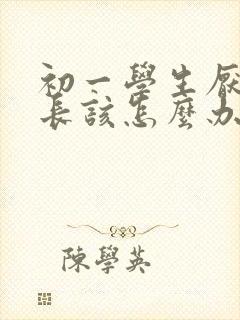 初一學生厭
長該怎麼办
陳學英